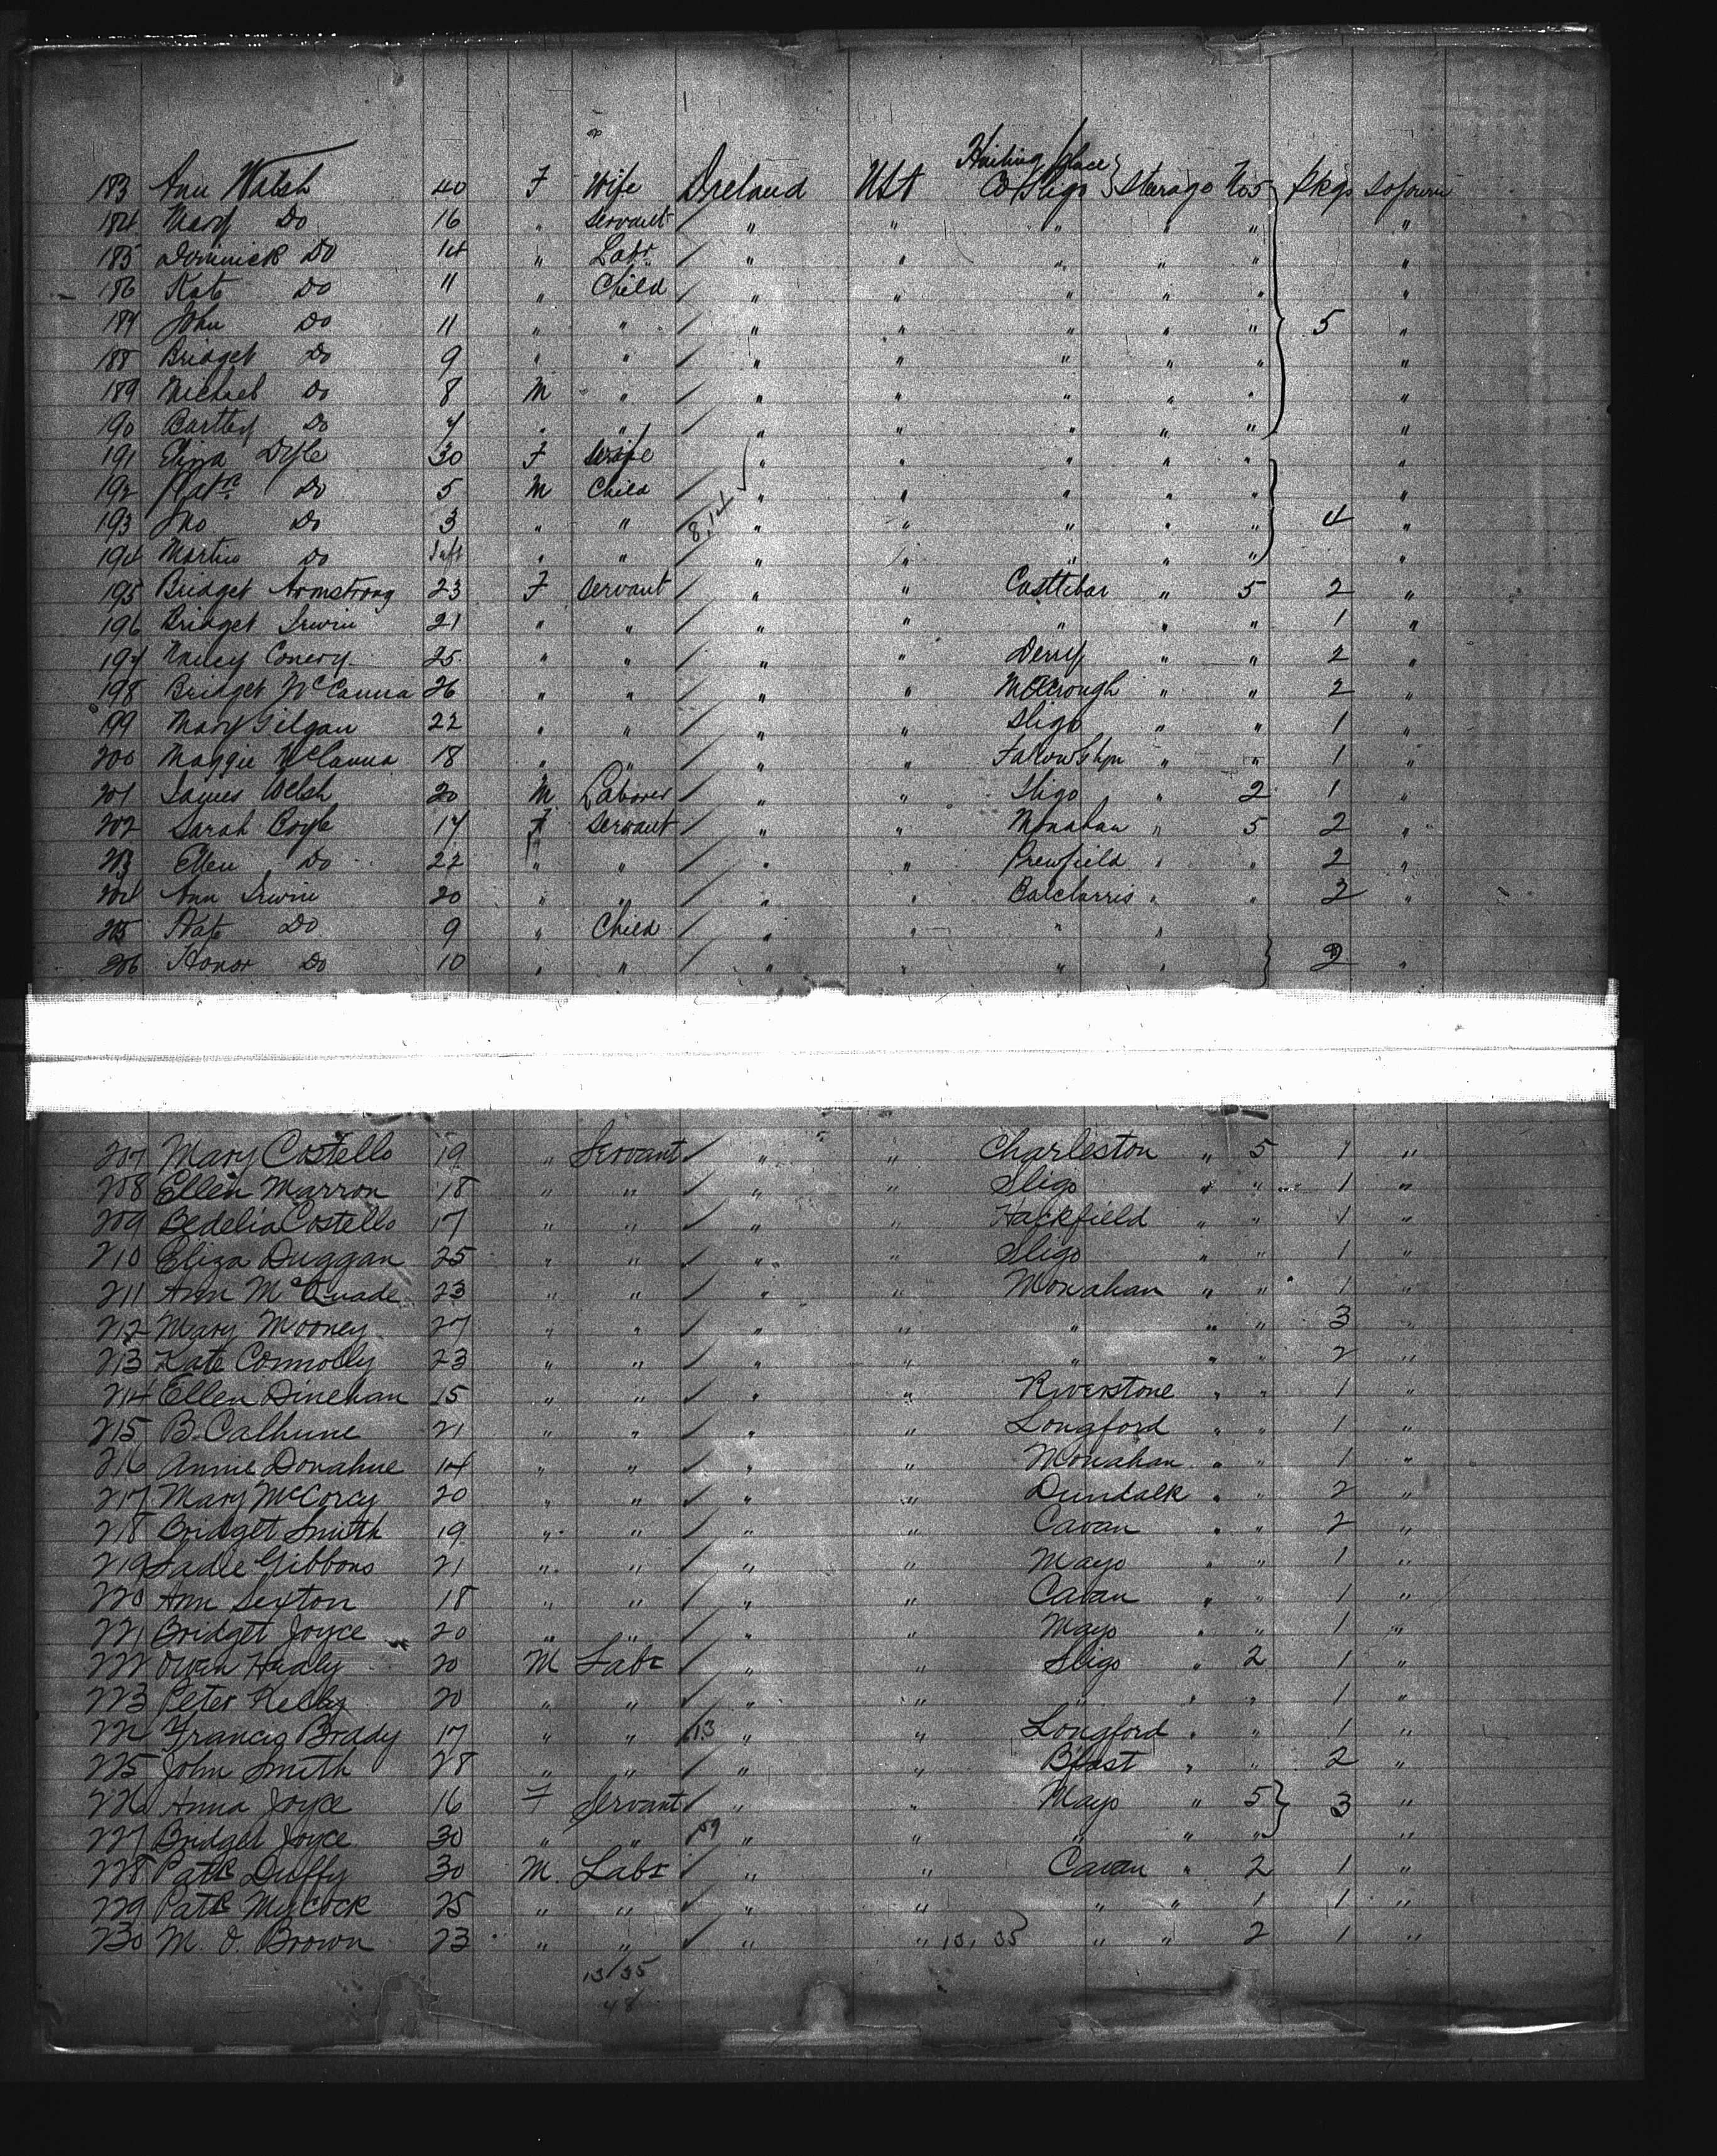 Hailing place
183 Ann Walsh 40 F Wife Ireland USA Co Sligo Sterage No5 pkgs Sojourn
184 Mary Do 16 " Servant " " " " " "
185 Dominick Do 14 " Labr " " " " " "
186 Kate Do 11 " Child " " " " " "
187 John Do 11 " " " " " " " 5 "
188 Bridget Do 9 " " " " " " " "
189 Michael Do 8 M " " " " " " "
190 Bartley Do 4 " " " " " " " "
191 Eliza Dyle 30 F Wife " " " " " "
192 Patk Do 5 M Child " " " " " "
193 Jno Do 3 " " 8.14 " " " " " 4 "
194 Martin Do Inft " " " " " " " "
195 Bridget Armstrong 23 F Servant " " Casttibar " 5 2 "
196 Bridget Irwin 21 " " " " " " " 1 "
197 Nancy Conery 25 " " " " Derry " " 2 "
198 Bridget McCanna 26 " " " " " " 2 "
199 Mary Gilgan 22 " " " " Sligo " " 1 "
200 Maggie McCanna 18 " " " " " " 1 "
201 James Welsh 20 M Laborer " " Sligo " 2 1 "
202 Sarah Coyle 17 F Servant " " Monahan " 5 2 "
203 Ellen Do 22 " " " " Prewfield " " 2 "
204 Ann Irwin 20 " " " " Balcharris " " 2 "
205 Kate Do 9 " Child " " " "
206 Honor Do 10 " " " " " " 2 "
207 Mary Costello 19 " Servant " " Charleston " 5 1 "
208 Ellen Marron 18 " " " " Sligo " " 1 "
209 Bedelia Costello 17 " " " " Hackfield " " 1 "
210 Eliza Duggan 25 " " " " Sligo " " 1 "
211 Ann McQuade 23 " " " " Monahan " " 1 "
212 Mary Mooney 27 " " " " " " " 3 "
213 Kate Connolly 23 " " " " " " " 2 "
214 Ellen Dinehan 15 " " " " Riverstone " " 1 "
215 B. Calhune 21 " " " " Longford " " 1 "
216 Annie Donahue 14 " " " " Monahan " " 1 "
217 Mary McCorcy 20 " " " " Dundalk " " 2 "
218 Bridget Smith 19 " " " " Cavan " " 2 "
219 Sadie Gibbons 21 " " " " Mayo " " 1 "
220 Ann Sexton 18 " " " " Cavan " " 1 "
221 Bridget Joyce 20 " " " " Mayo " " 1 "
222 Owen Healy 20 M Labr " " Sligo " 2 1 "
223 Peter Kelly 20 " " " " " " " 1 "
224 Francis Brady 17 " " 13 " " Longford " " 1 "
225 John Smith 28 " " " " Bfast " " 2 "
226 Anna Joyce 16 F Servant " " Mayo " 5 3 "
227 Bridget Joyce 30 " " 59 " " " " " "
228 Patk Duffy 30 M. Labr " " Cavan " 2 1 "
229 Patk Mycock 25 " " " " " " 1 1 "
230 M. J. Brown 23 " " " " 13, 35 " " 2 1 "
13/35
48